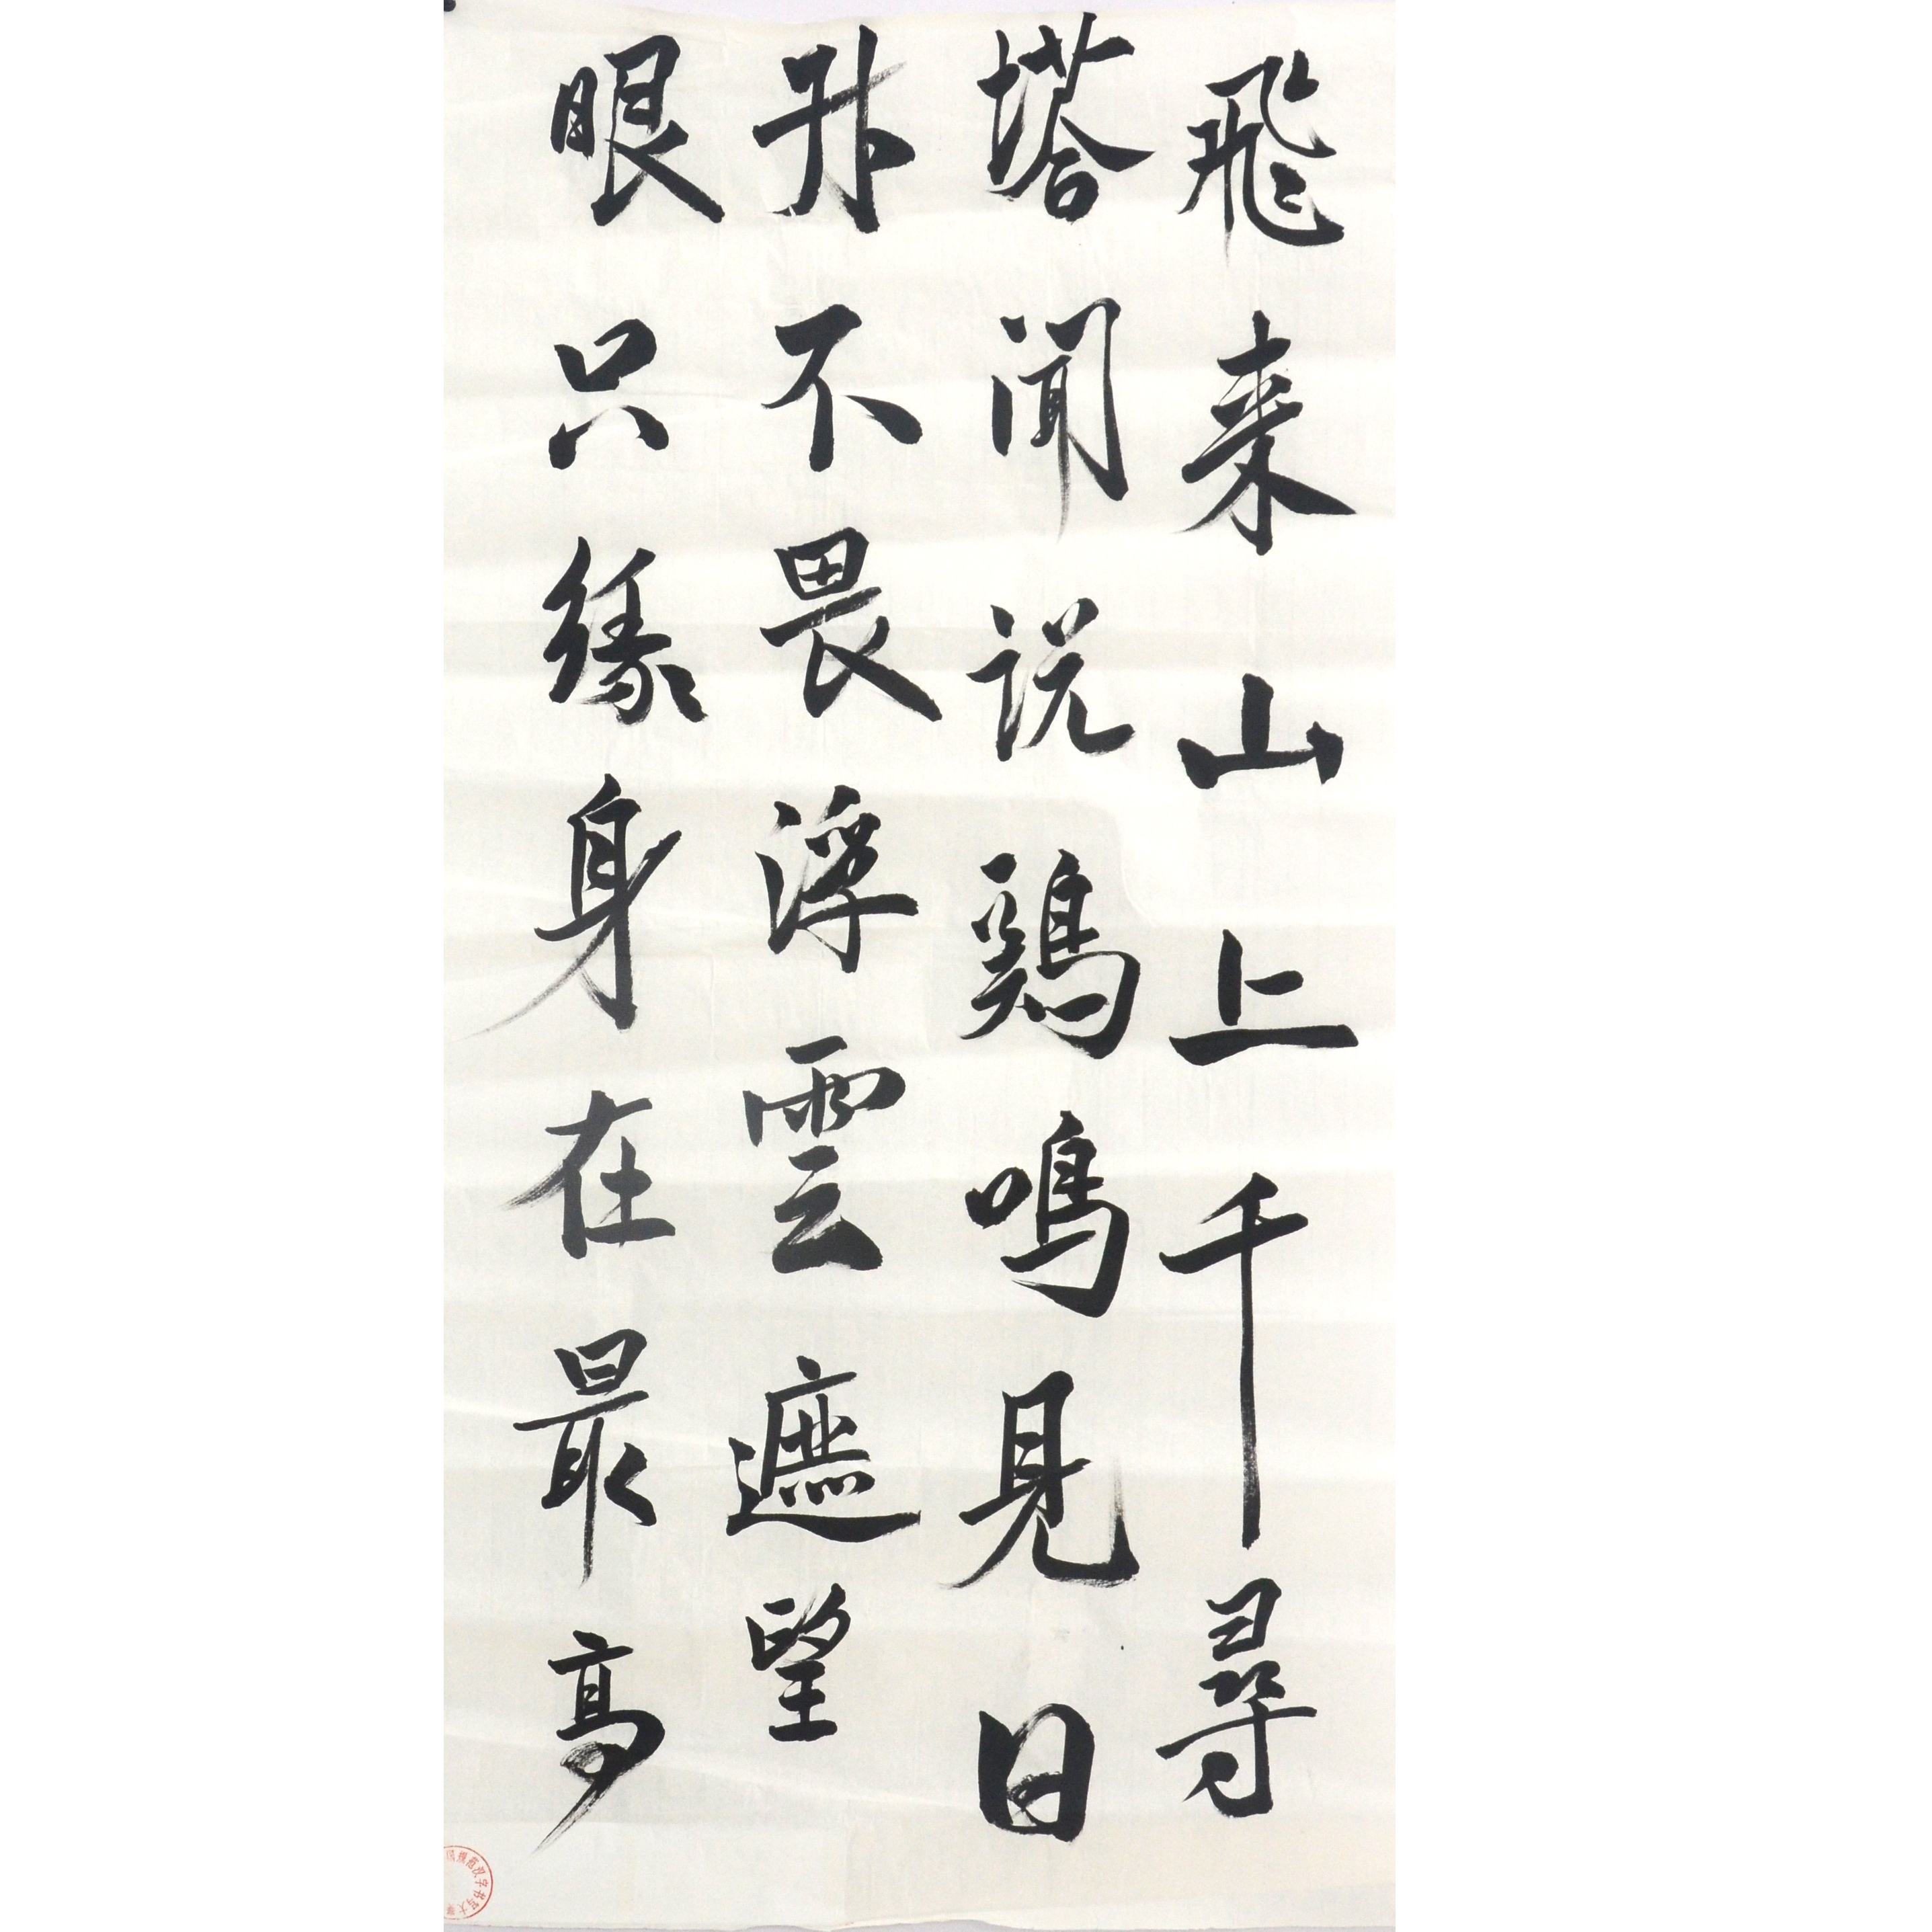 飛来山上千尋
塔聞説鷄鳴見日
升不畏浮雲遮望
眼只緣身在最高